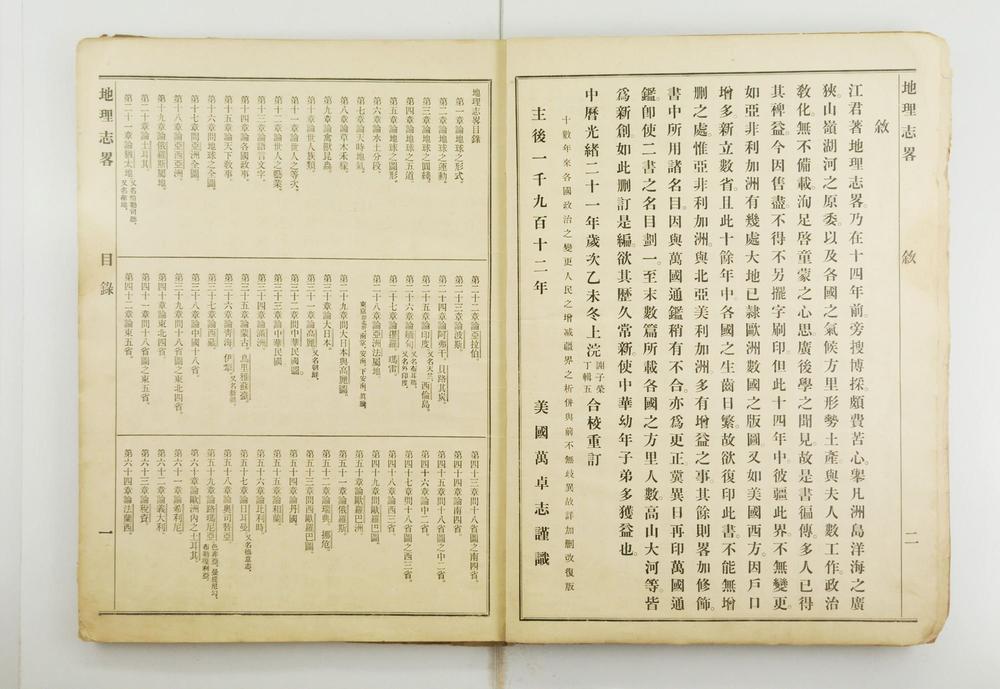 地理志畧
敘
二
敘
江君著地理志畧。乃在十四年前。旁搜博採。頗費苦心。舉凡洲島洋海之廣
狹。山嶺湖河之原委。以及各國之氣候方里。形勢土產。與夫人數工作政治
敎化。無不備載。洵足啓童蒙之心思。廣後學之聞見。故是書徧傳。多人已得
其裨益。今因售盡。不得不另擺字刷印。但此十四年中。彼疆此界。不無變更。
如亞非利加洲有幾處大地。已隸歐洲數國之版圖。又如美國西方。因戶口
增多。新立數省。且此十餘年中。各國之生齒日繁。故欲復印此書。不能無增
删之處。惟亞非利加洲。與北亞美利加洲。多有增益之事。其餘則畧加修飾。
書中所用諸名目。因與萬國通鑑稍有不合。亦爲更正。冀異日再印萬國通
鑑。卽使二書之名目劃一。至末數篇所載各國之方里人數。高山大河等。皆
爲新創。如此删訂是編。欲其歷久常新。使中華幼年子弟。多獲益也。
中曆光緒二十一年歲次乙未冬上浣 謝子榮 丁輯五 合校重訂
十數年來各國政治之變更人民之增減疆界之析併與前不無歧異故詳加删改復版
主後一千九百十二年 美國萬卓志謹識
地理志畧目錄
第一章論地球之形式。
第二章論地球之運動。
第三章論地球之圖綫。
第四章論地球之圖形。
第五章論地球之五道。
第六章論水土分段。
第七章論天時地氣。
第八章論草木禾稼。
第九章論禽獸昆蟲。
第十章論世人族類。
第十一章論世人之等次。
第十二章論世人之藝業。
第十三章論語言文字。
第十四章論各國政事。
第十五章論天下敎事。
第十六章問地球之全圖。
第十七章問亞洲全圖。
第十八章論亞西亞洲。
第十九章論俄羅斯屬地。
第二十章論土耳其。
第二十一章論猶太地。
第二十二章論亞拉伯。
第二十三章論波斯。
第二十四章論阿弗干。貝路其炭。
第二十五章論印度。又名天竺。西倫島。
第二十六章論緬甸。
第二十七章論暹羅。瑪雷。
第二十八章論亞洲法屬地。
第二十九章問大日本與高麗圖。
第三十章論大日本。
第三十一章論高麗。又名朝鮮。
第三十二章問中華民國圖。
第三十三章論中華民國。
第三十四章論滿洲。
第三十五章論蒙古。烏里雅蘇臺。
第三十六章論靑海。伊犂。
第三十七章論西藏。
第三十八章論中國十八省。
第三十九章問十八省圖之東北四省。
第四十章論東北四省。
第四十一章問十八省圖之東五省。
第四十二章論東五省。
第四十三章問十八省圖之南四省。
第四十四章論南四省。
第四十五章問十八省圖之中二省。
第四十六章論中二省。
第四十七章問十八省圖之西三省。
第四十八章論西三省。
第四十九章問歐羅巴圖。
第五十章論歐羅巴洲。
第五十一章論俄羅斯。
第五十二章論瑞典。挪危。
第五十三章問西歐羅巴圖。
第五十四章論丹國。
第五十五章論和蘭。
第五十六章論比利時。
第五十七章論日耳曼。又名德意志。
第五十八章論奧司暜亞。
第五十九章論路瑪尼亞。
第六十章論歐洲內之土耳其。
第六十一章論希利尼。
第六十二章論義大利。
第六十三章論稅資。
第六十四章論法蘭西。
地理志畧
目錄
一